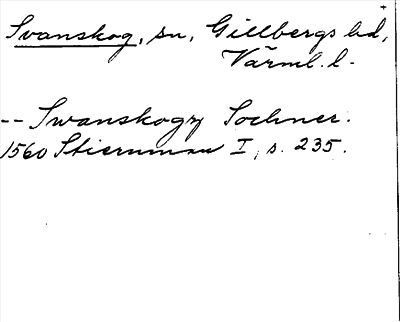 Svanskog, sn, Gillbergs hd,
Värml. l.
-- Swanskogz Sochner.
1560 Stiernman I, s. 235.